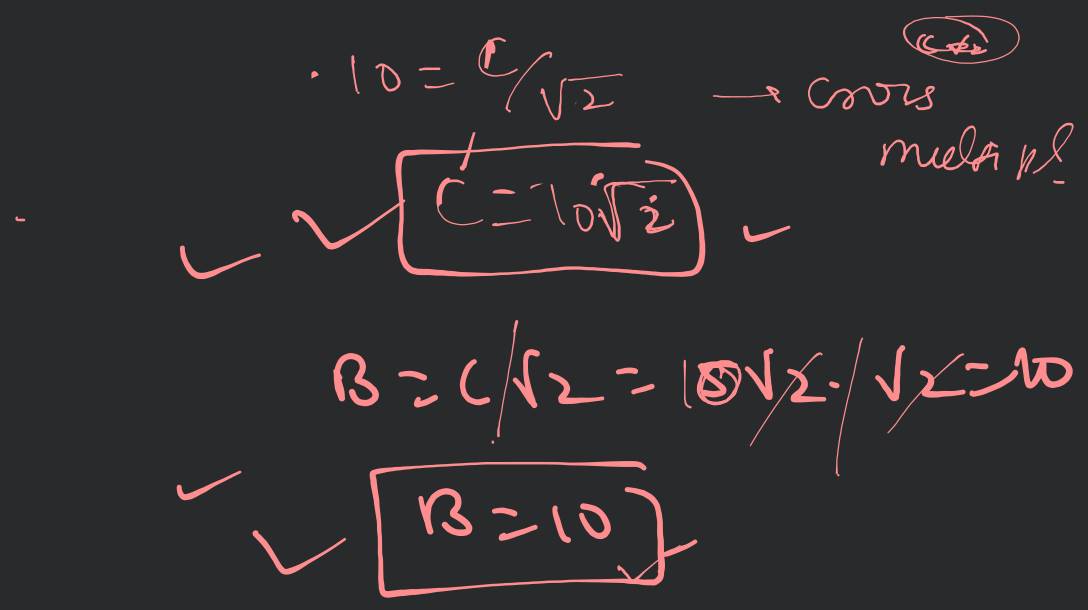 10 = C/√2 → cross
multipl
C = 10√2
B = C/√2 = 10√2 / √2 = 10
B = 10